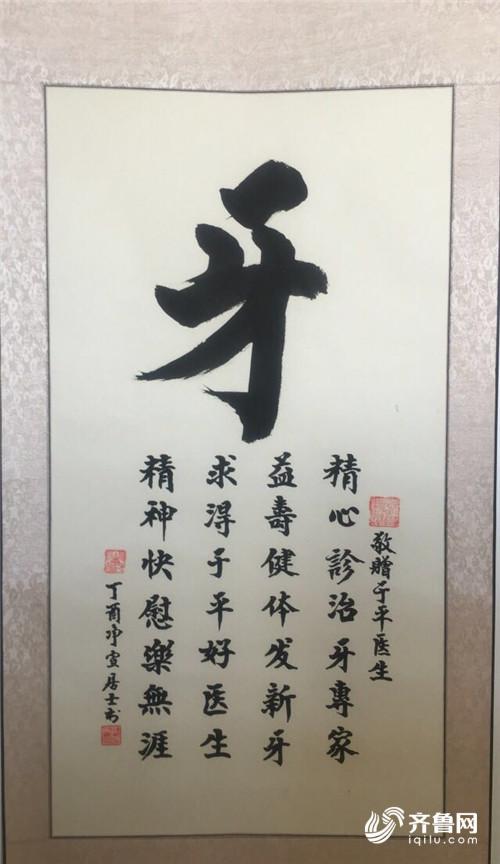 牙
敬贈于平医生
精心診治牙專家
益壽健体发新牙
求得于平好医生
精神快慰樂無涯
丁酉净宣居士书
齐鲁网
iqilu.com